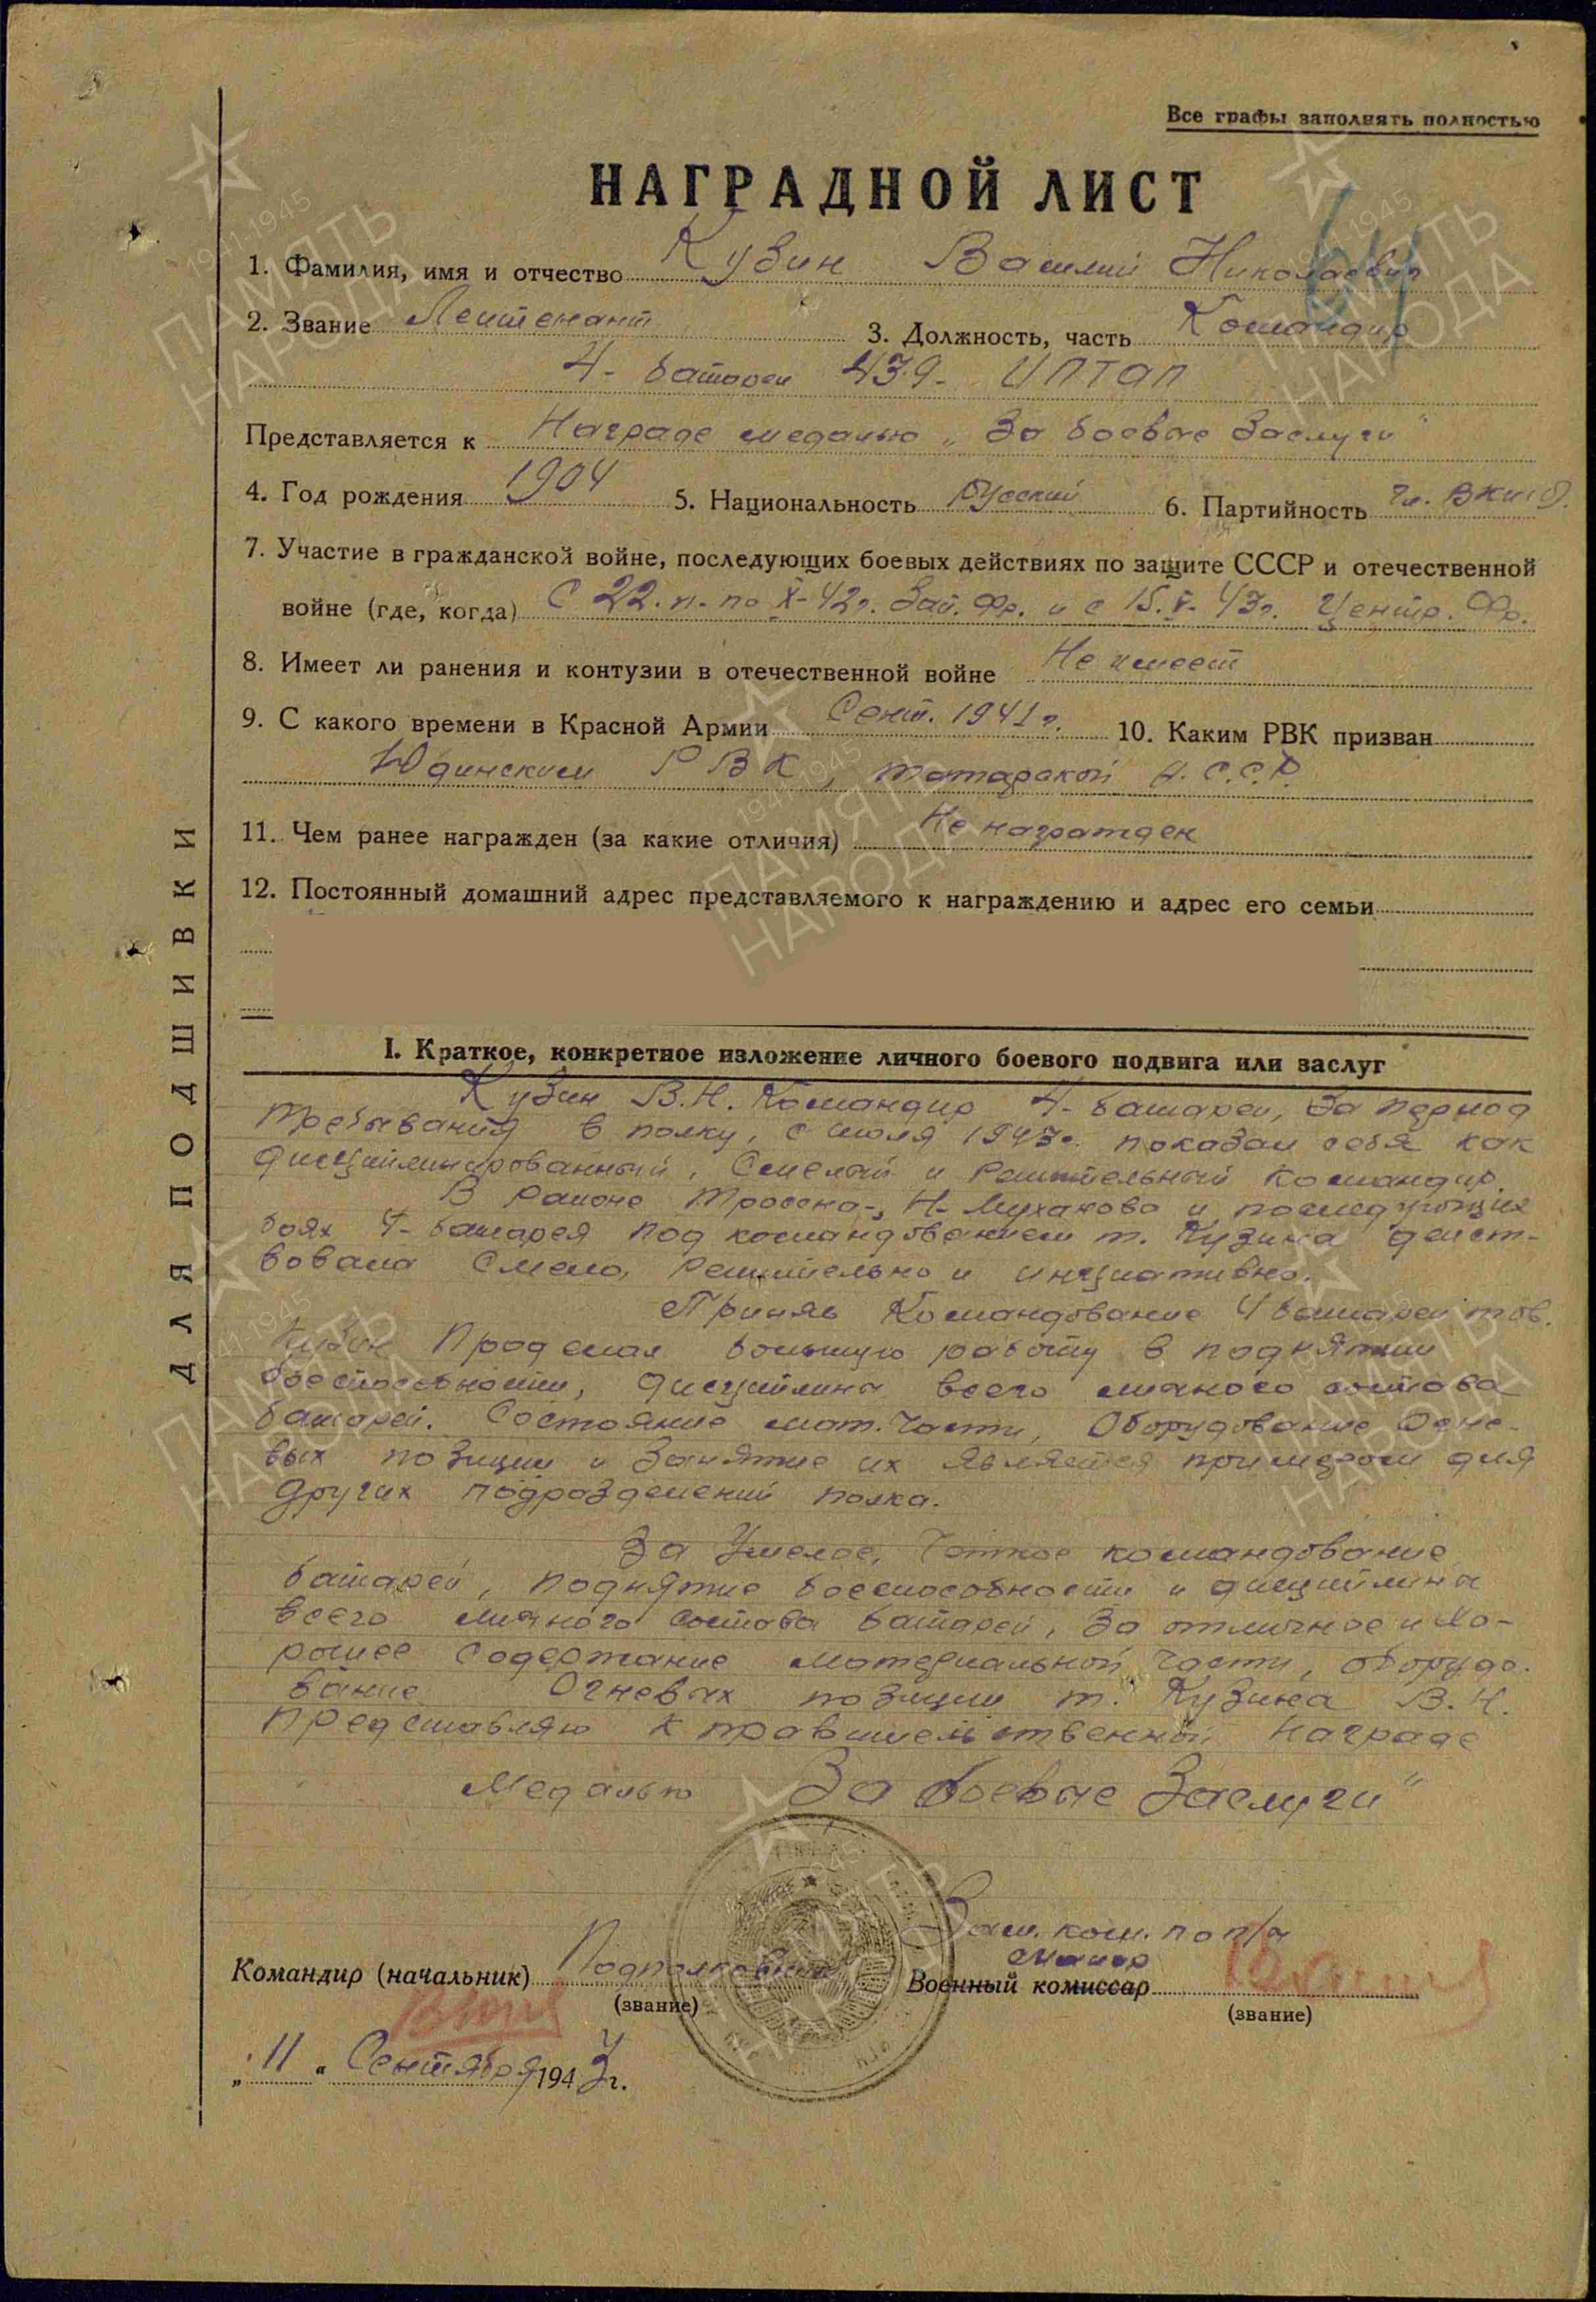 Все графы заполнять полностью
НАГРАДНОЙ ЛИСТ
1. Фамилия, имя и отчество Кузин Василий Николаевич
2. Звание Лейтенант 3. Должность, часть Командир
4- батареи 439- ИПТАП
Представляется к Награде медалью „За боевые Заслуги"
4. Год рождения 1904 5. Национальность Русский 6. Партийность Чл. ВКП(б).
7. Участие в гражданской войне, последующих боевых действиях по защите СССР и отечественной
войне (где, когда) С 22. по X-42г. Зап. Фр. и с 15.V-43г. Центр. Фр.
8. Имеет ли ранения и контузии в отечественной войне Не имеет
9. С какого времени в Красной Армии Сент. 1941г. 10. Каким РВК призван
Юдинским РВК, татарской А.С.С.Р.
11. Чем ранее награжден (за какие отличия) Не награжден
12. Постоянный домашний адрес представляемого к награждению и адрес его семьи
ДЛЯ ПОДШИВКИ
I. Краткое, конкретное изложение личного боевого подвига или заслуг
Кузин В.Н. Командир 4- батареи, За период
пребывания в полку, с июля 1943г. показал себя как
дисциплинированный, Смелый и Решительный командир.
В Районе Тросна-, Н- Мухавово и последующих
боях 4- батарея под командованием т. Кузина дейст-
вовала Смело, Решительно и инициативно.
Приняв Командование 4 батареей тов.
Кузин Проделал большую работу в поднятии
боеспособности, дисциплины всего личного состава
батареи. Состояние мат. Части, Оборудование Огне-
вых позиции и Занятие их является примером для
других подразделений полка.
За Умелое, Четкое командование
батареи, поднятие боеспособности и дисциплины
всего личного Состава батареи, За отличное и Хо-
рошее Содержание материальной части, оборудо-
вание Огневых позиции т. Кузина В.Н.
представляю к правительственной Награде
Медалью За боевые Заслуги"
Зам. ком. по п/ч
майор
Командир (начальник) Подполковник Военный комиссар
(звание) (звание)
„11" Сентября 1943г.
1941-1945
ПАМЯТЬ
НАРОДА